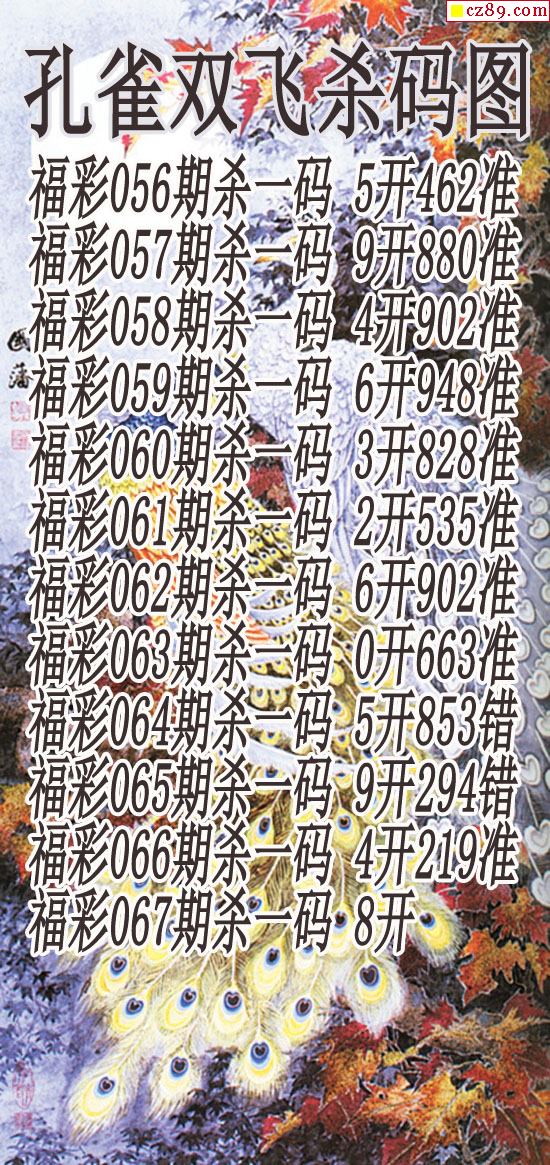 cz89.com
孔雀双飞杀码图
福彩056期杀一码 5开462准
福彩057期杀一码 9开880准
福彩058期杀一码 4开902准
福彩059期杀一码 6开948准
福彩060期杀一码 3开828准
福彩061期杀一码 2开535准
福彩062期杀一码 6开902准
福彩063期杀一码 0开663准
福彩064期杀一码 5开853错
福彩065期杀一码 9开294错
福彩066期杀一码 4开219准
福彩067期杀一码 8开